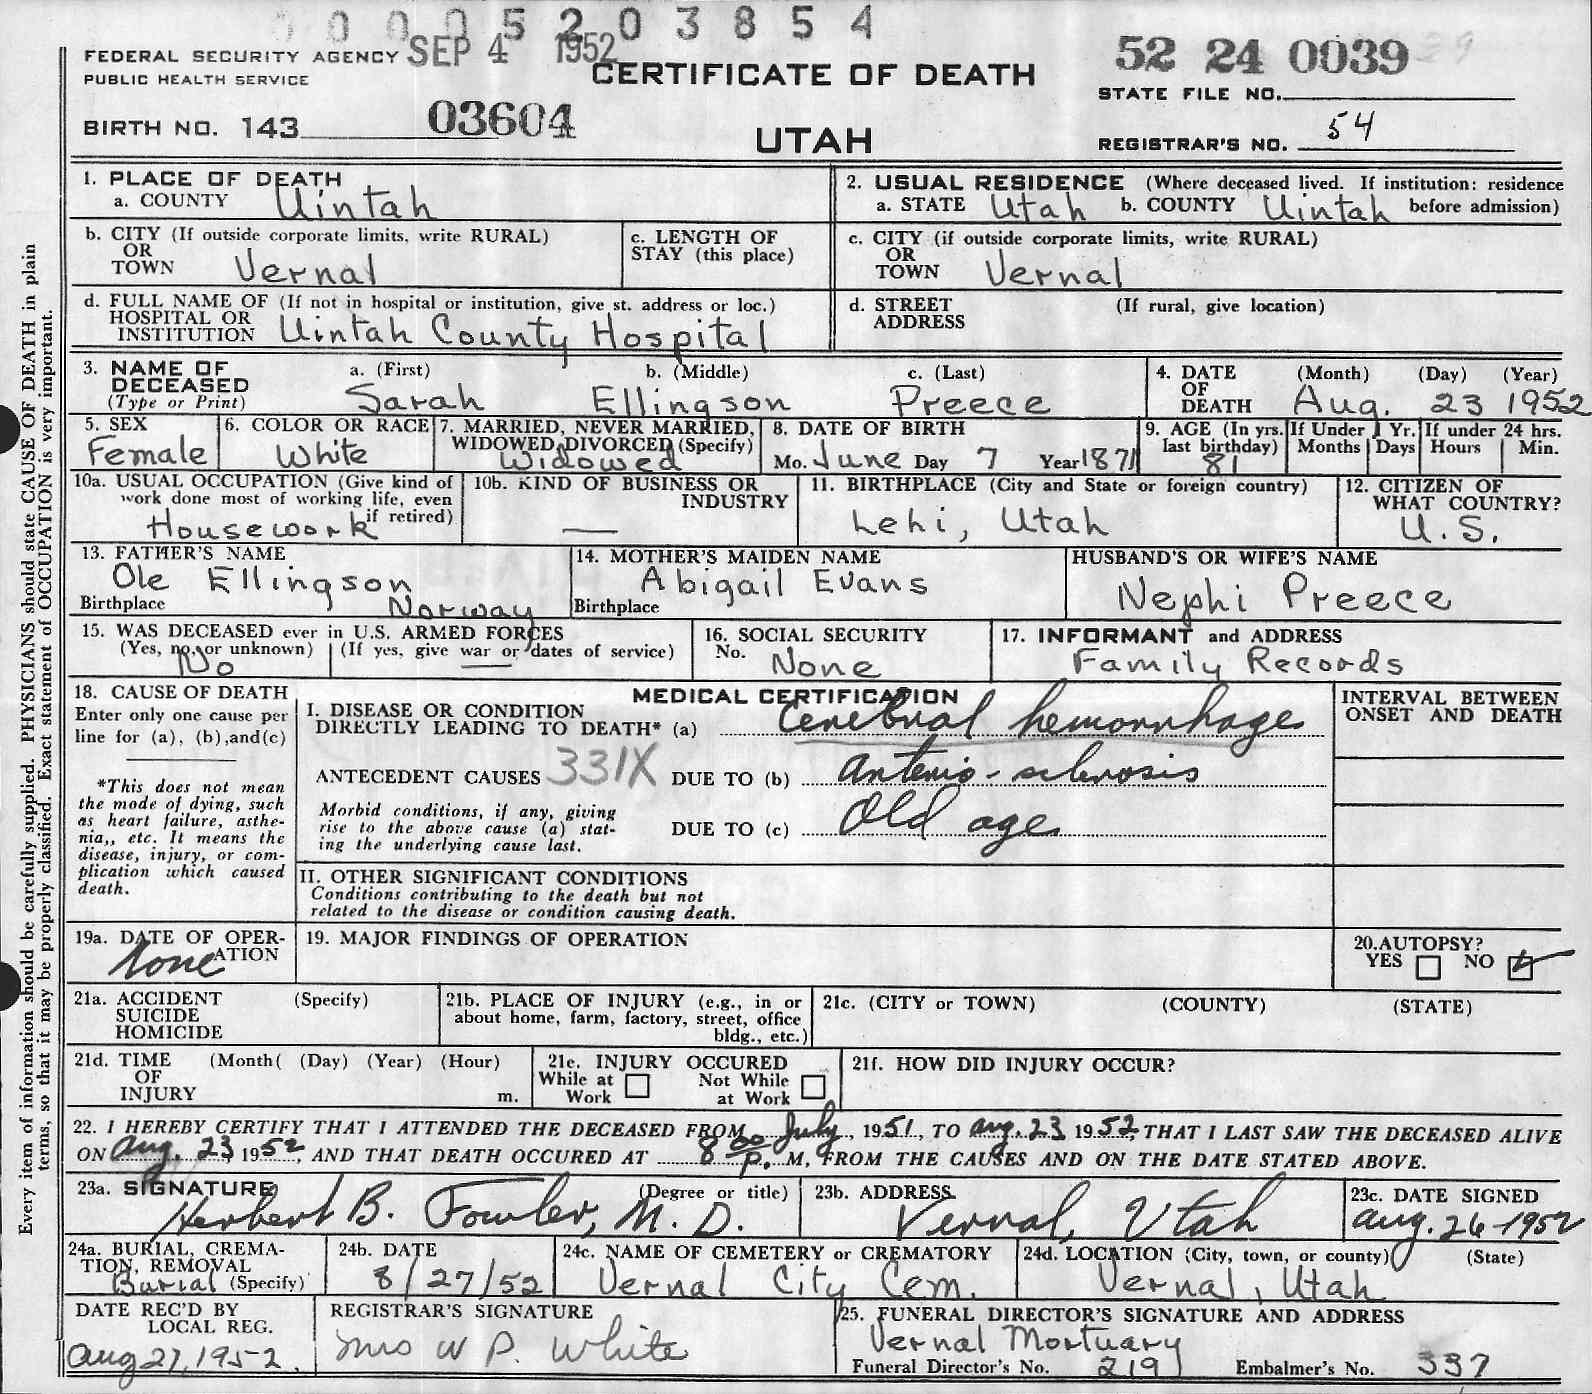 0 0 0 0 5 2 0 3 8 5 4
FEDERAL SECURITY AGENCY SEP 4 1952
PUBLIC HEALTH SERVICE
CERTIFICATE OF DEATH
UTAH
52 24 0039
STATE FILE NO.
BIRTH NO. 143 03604
REGISTRAR'S NO. 54
Every item of information should be carefully supplied. PHYSICIANS should state CAUSE OF DEATH in plain
terms, so that it may be properly classified. Exact statement of OCCUPATION is very important.
1. PLACE OF DEATH
a. COUNTY Uintah
2. USUAL RESIDENCE (Where deceased lived. If institution: residence
a. STATE Utah b. COUNTY Uintah before admission)
b. CITY (If outside corporate limits, write RURAL)
OR
TOWN Vernal
c. LENGTH OF
STAY (this place)
c. CITY (if outside corporate limits, write RURAL)
OR
TOWN Vernal
d. FULL NAME OF (If not in hospital or institution, give st. address or loc.)
HOSPITAL OR
INSTITUTION Uintah County Hospital
d. STREET (If rural, give location)
ADDRESS
3. NAME OF a. (First) b. (Middle) c. (Last)
DECEASED
(Type or Print) Sarah Ellingson Preece
4. DATE (Month) (Day) (Year)
OF
DEATH Aug. 23 1952
5. SEX
Female
6. COLOR OR RACE
White
7. MARRIED, NEVER MARRIED,
WIDOWED, DIVORCED (Specify)
Widowed
8. DATE OF BIRTH
Mo. June Day 7 Year 1871
9. AGE (In yrs. If Under 1 Yr. If under 24 hrs.
last birthday) Months Days Hours Min.
81
10a. USUAL OCCUPATION (Give kind of
work done most of working life, even
if retired)
Housework
10b. KIND OF BUSINESS OR
INDUSTRY
—
11. BIRTHPLACE (City and State or foreign country)
Lehi, Utah
12. CITIZEN OF
WHAT COUNTRY?
U.S.
13. FATHER'S NAME
Ole Ellingson
Birthplace Norway
14. MOTHER'S MAIDEN NAME
Abigail Evans
Birthplace
HUSBAND'S OR WIFE'S NAME
Nephi Preece
15. WAS DECEASED ever in U.S. ARMED FORCES
(Yes, no, or unknown) (If yes, give war or dates of service)
No —
16. SOCIAL SECURITY
No. None
17. INFORMANT and ADDRESS
Family Records
18. CAUSE OF DEATH
Enter only one cause per
line for (a), (b),and(c)
*This does not mean
the mode of dying, such
as heart failure, asthe-
nia,, etc. It means the
disease, injury, or com-
plication which caused
death.
MEDICAL CERTIFICATION
I. DISEASE OR CONDITION
DIRECTLY LEADING TO DEATH* (a) Cerebral hemorrhage
ANTECEDENT CAUSES 331X DUE TO (b) Arterio-sclerosis
Morbid conditions, if any, giving
rise to the above cause (a) stat-
ing the underlying cause last.
DUE TO (c) Old age
INTERVAL BETWEEN
ONSET AND DEATH
II. OTHER SIGNIFICANT CONDITIONS
Conditions contributing to the death but not
related to the disease or condition causing death.
19a. DATE OF OPER-
ATION
None
19. MAJOR FINDINGS OF OPERATION
20.AUTOPSY?
YES NO
21a. ACCIDENT (Specify)
SUICIDE
HOMICIDE
21b. PLACE OF INJURY (e.g., in or
about home, farm, factory, street, office
bldg., etc.)
21c. (CITY or TOWN) (COUNTY) (STATE)
21d. TIME (Month( (Day) (Year) (Hour)
OF
INJURY m.
21e. INJURY OCCURED
While at Work Not While at Work
21f. HOW DID INJURY OCCUR?
22. I HEREBY CERTIFY THAT I ATTENDED THE DECEASED FROM July, 1951, TO Aug. 23 1952, THAT I LAST SAW THE DECEASED ALIVE
ON Aug. 23, 1952, AND THAT DEATH OCCURED AT 8 00 P. M, FROM THE CAUSES AND ON THE DATE STATED ABOVE.
23a. SIGNATURE (Degree or title)
Herbert B. Fowler, M. D.
23b. ADDRESS
Vernal, Utah
23c. DATE SIGNED
Aug. 26-1952
24a. BURIAL, CREMA-
TION, REMOVAL
Burial (Specify)
24b. DATE
8/27/52
24c. NAME OF CEMETERY or CREMATORY
Vernal City Cem.
24d. LOCATION (City, town, or county) (State)
Vernal, Utah
DATE REC'D BY
LOCAL REG.
Aug 27, 1952.
REGISTRAR'S SIGNATURE
Mrs W P. White
25. FUNERAL DIRECTOR'S SIGNATURE AND ADDRESS
Vernal Mortuary
Funeral Director's No. 219 Embalmer's No. 337